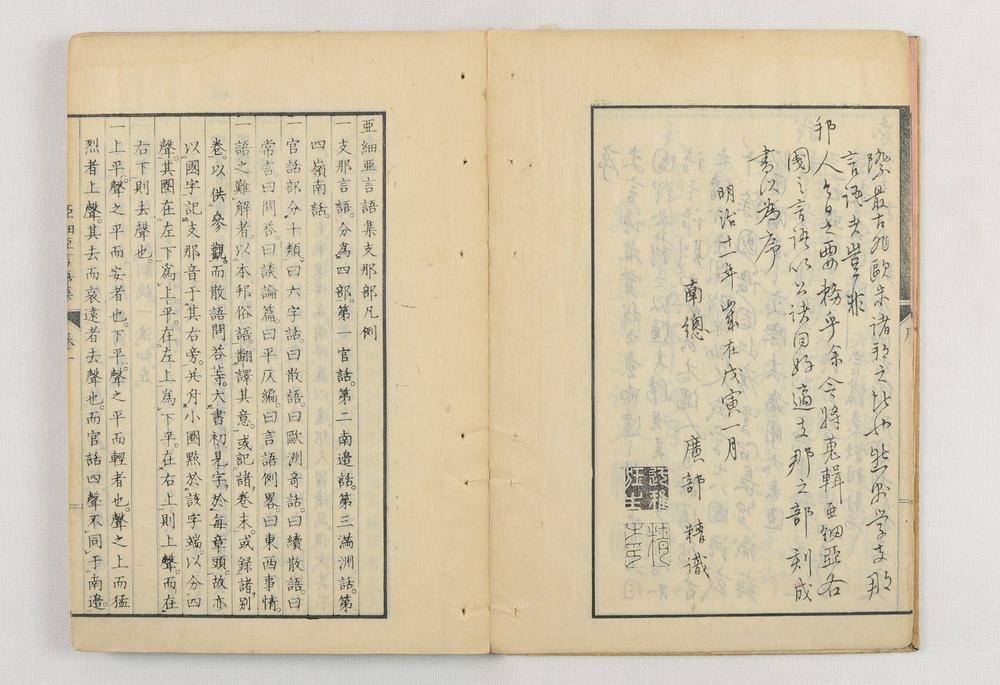 際最古非歐米諸邦之比也然則學支那
言語者豈非
邦人今日之要務乎余今將蒐輯亞細亞各
國之言語以公諸同好適支那之部刻成
書以為序
明治十一年歲在戊寅一月
南總 廣部 精識
亞細亞言語集支那部凡例
一支那言語。分為四部。第一官話。第二南邊話。第三滿洲話。第
四嶺南話。
一官話部分十類。曰六字話曰散語曰歐洲奇話曰續散語曰
常言曰問答曰談論篇。曰平仄編。曰言語例畧。曰東西事情。
一語之難解者。以本邦俗語。翻譯其意。或記諸卷末。或錄諸別
卷。以供參觀。而散語問答等。大書初見字。於每章頭。故亦
以國字記支那音于其右旁。共舟小圈點於該字端。以分四
聲。其圈在左下為上平。在左上為下平。在右上則上聲。而在
右下則去聲也。
一上平聲之平而安者也。下平。聲之平而輕者也。聲之上而猛
烈者上聲。其去而哀遠者去聲也。而官話四聲不同于南邊。
亞細亞言語集 卷一
序